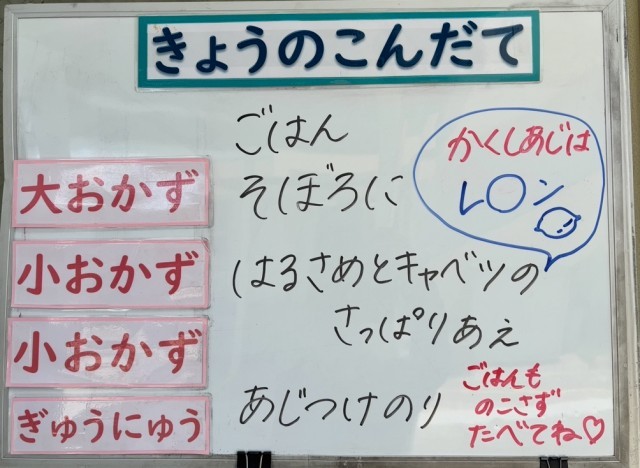 きょうのこんだて
ごはん
大おかず
そぼろに
小おかず
はるさめとキャベツの
さっぱりあえ
かくしあじは
レ〇ン
小おかず
ぎゅうにゅう
あじつけのり
ごはんも
のこさず
たべてね♡